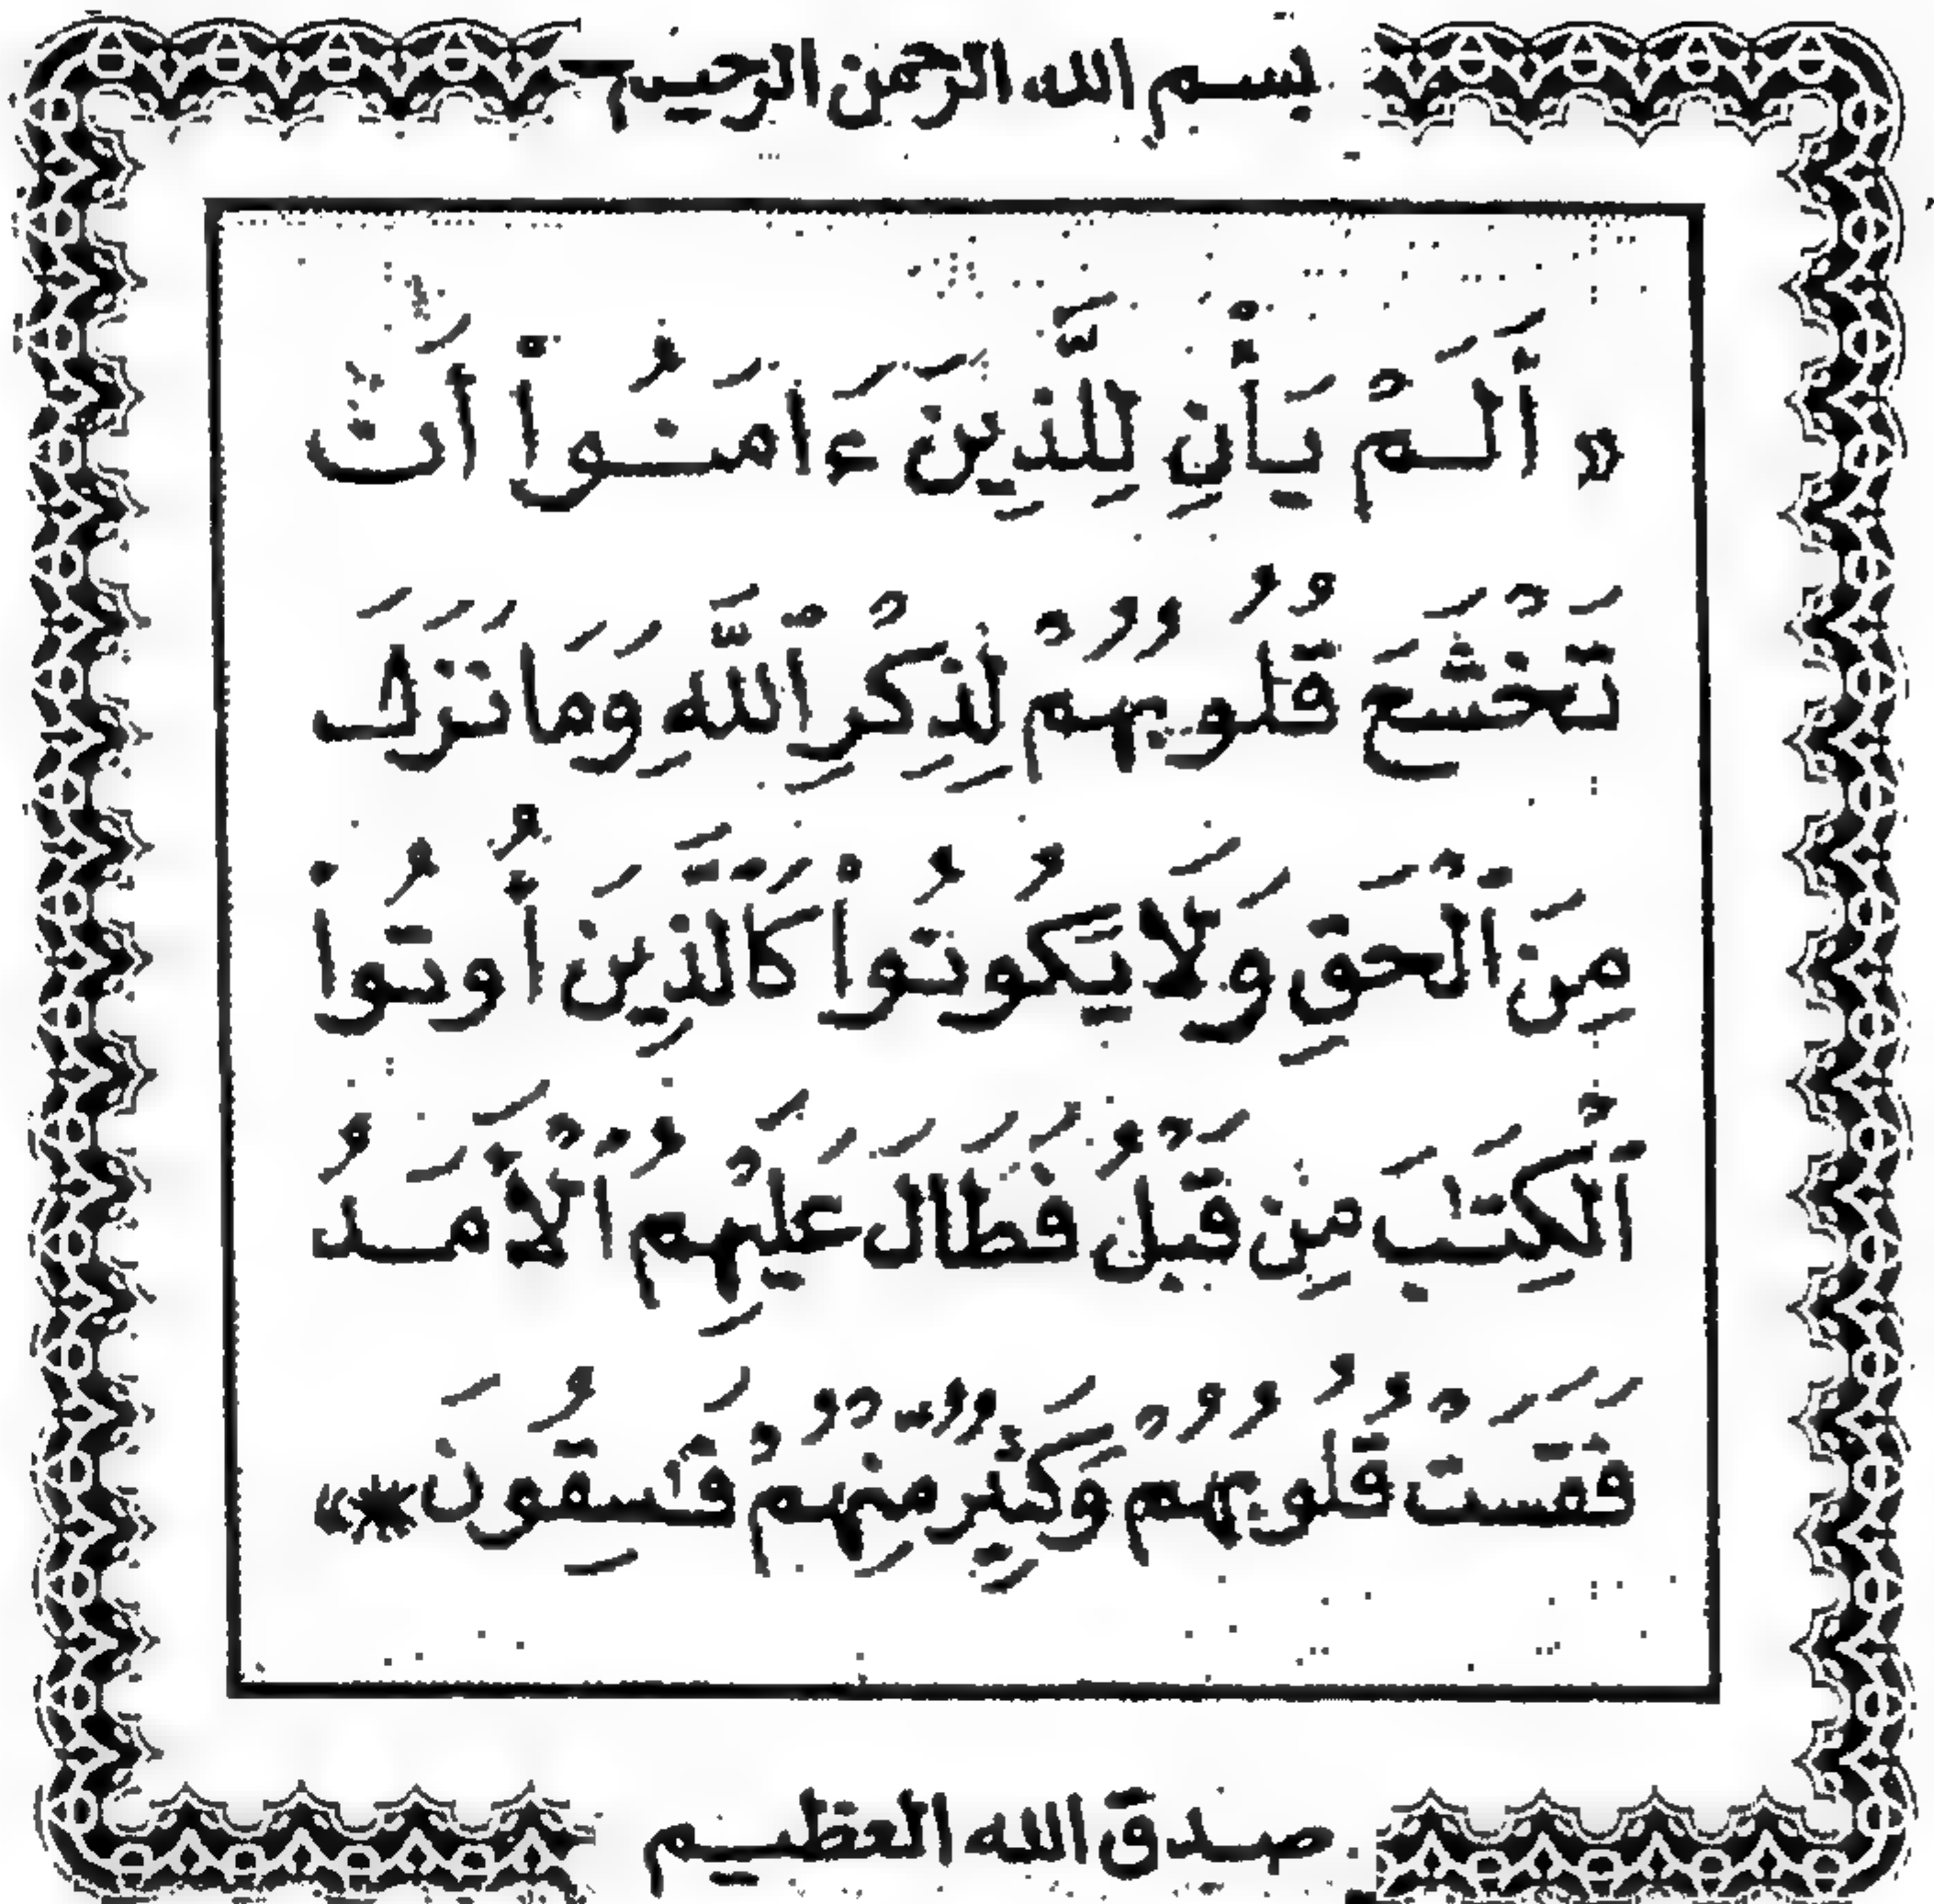 بسم الله الرحمن الرحيم
« أَلَمْ يَأْنِ لِلَّذِينَ ءَامَنُوٓاْ أَن
تَخْشَعَ قُلُوبُهُمْ لِذِكْرِ ٱللَّهِ وَمَا نَزَلَ
مِنَ ٱلْحَقِّ وَلَا يَكُونُواْ كَٱلَّذِينَ أُوتُواْ
ٱلْكِتَٰبَ مِن قَبْلُ فَطَالَ عَلَيْهِمُ ٱلْأَمَدُ
فَقَسَتْ قُلُوبُهُمْ وَكَثِيرٌ مِّنْهُمْ فَٰسِقُونَ * »
صدق الله العظيم